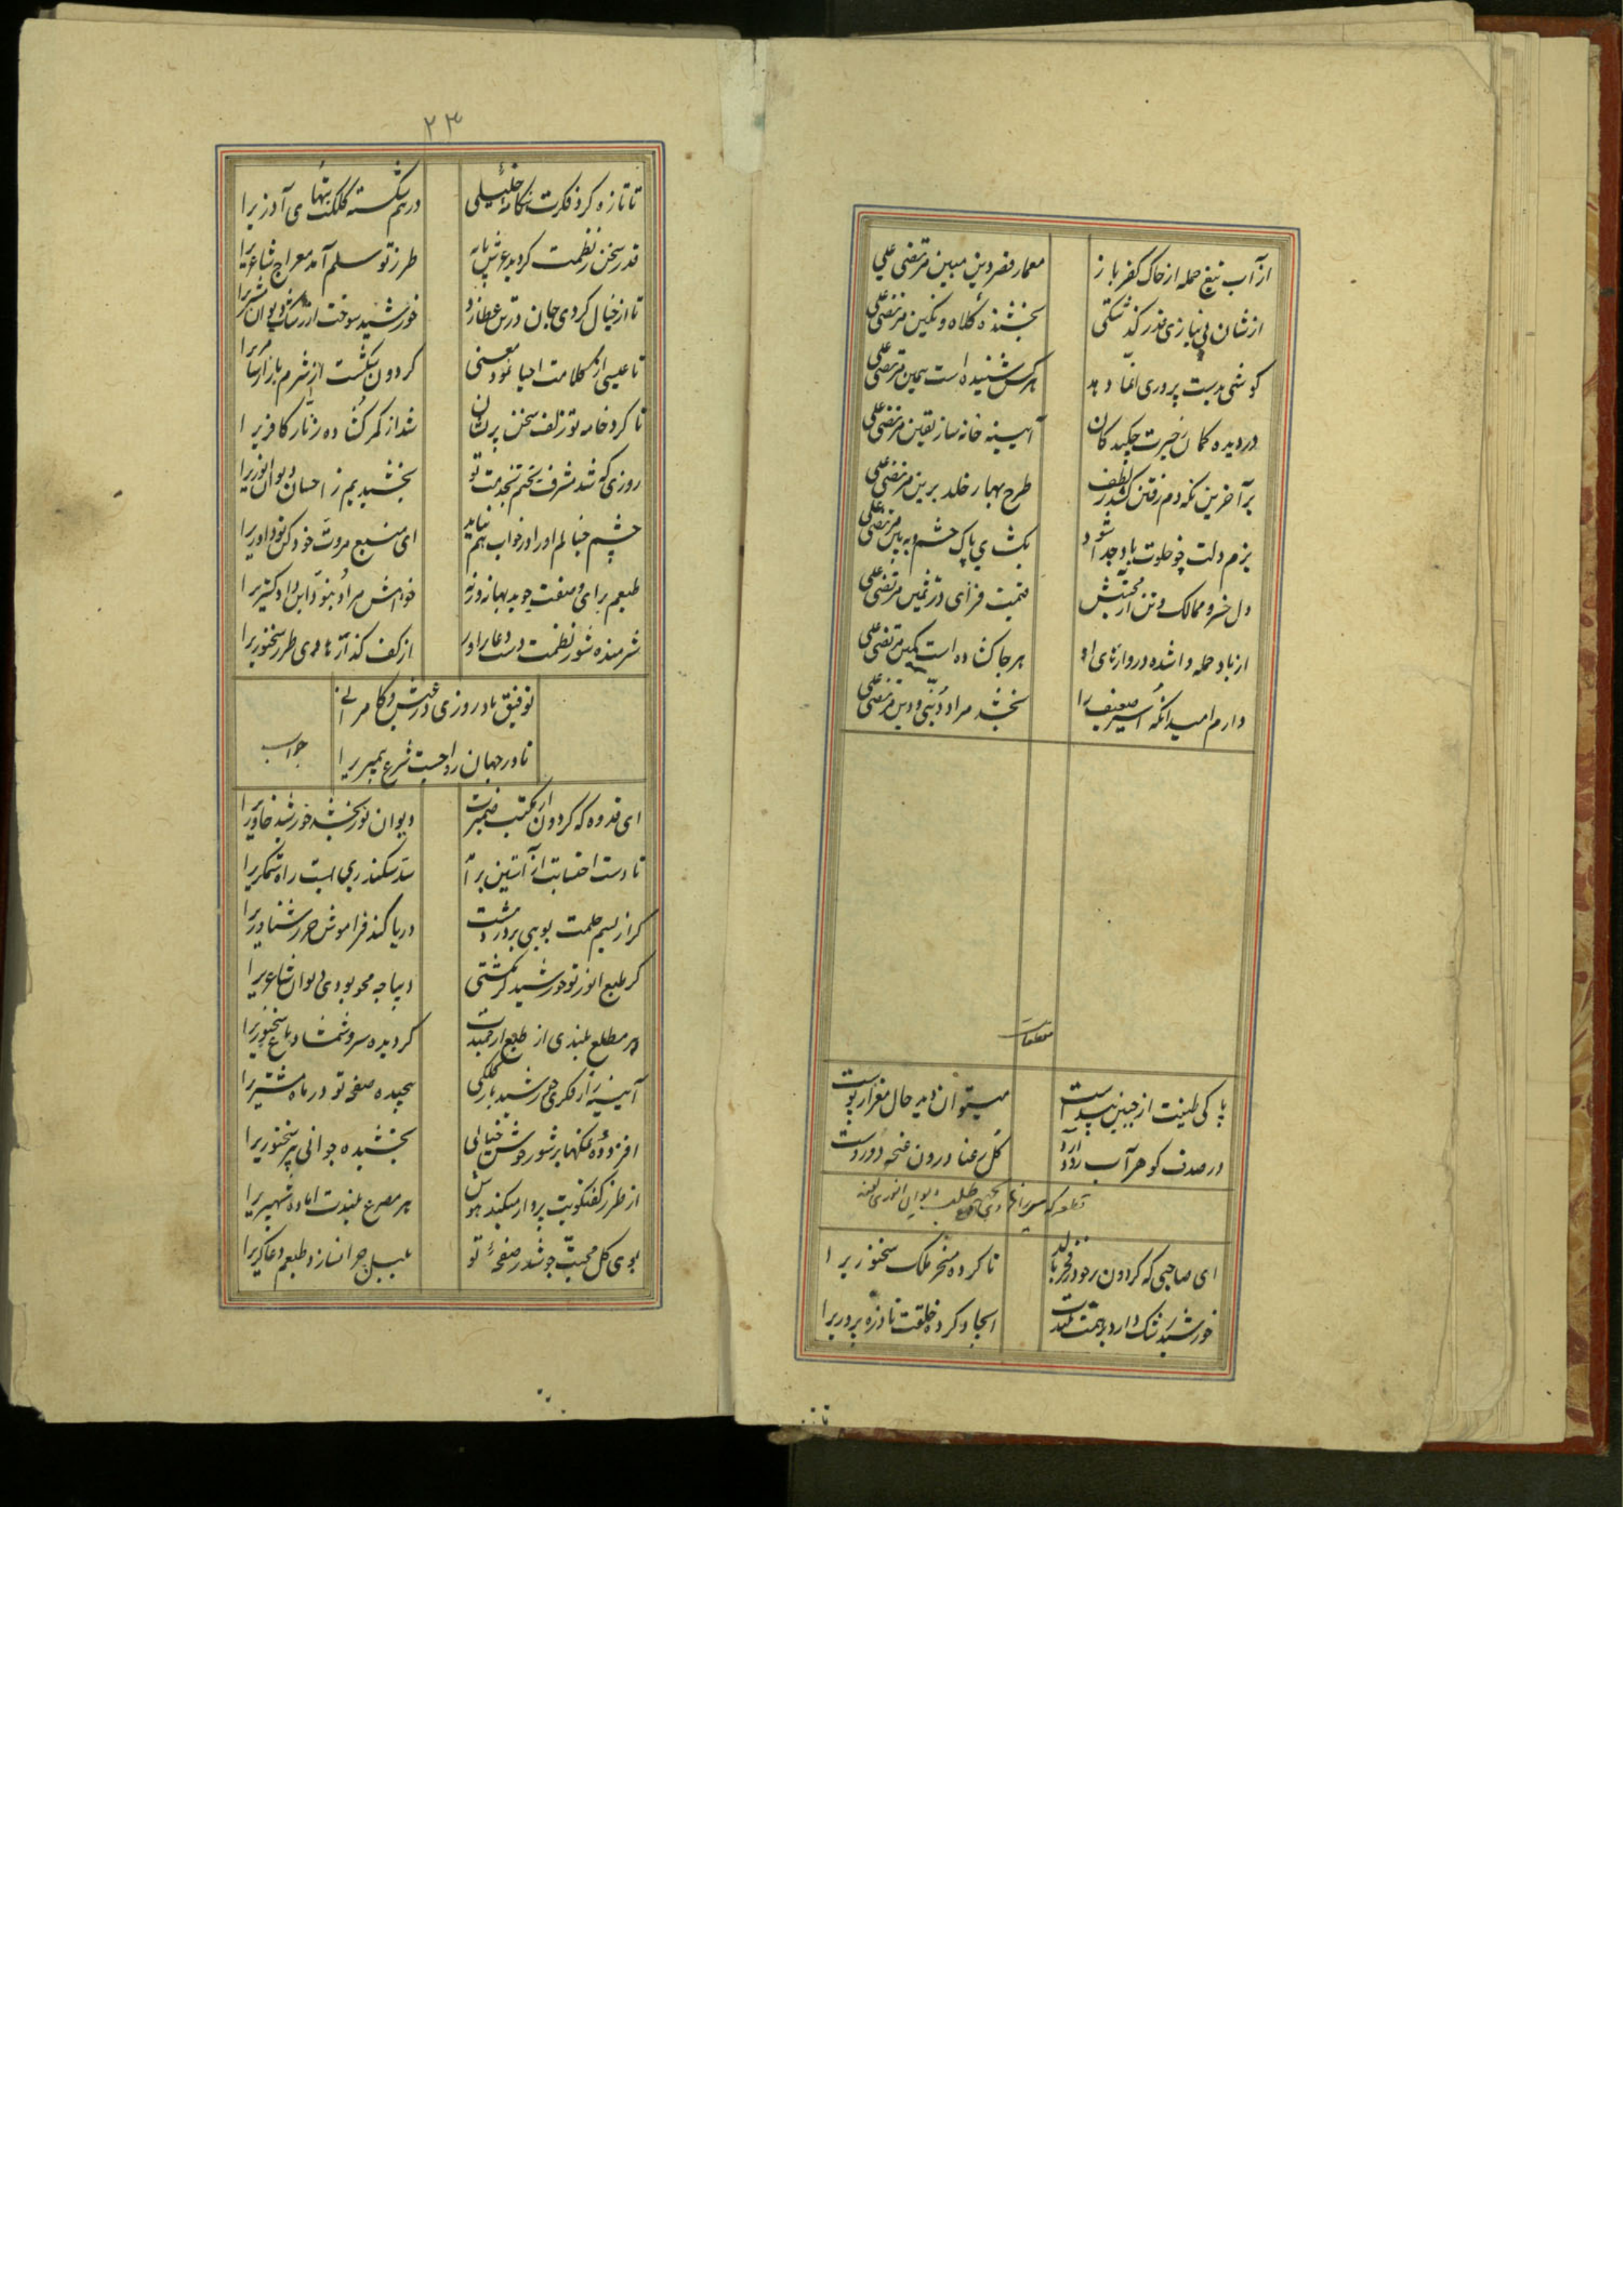 از آب تیغ حمله از خاک کفر باز
معمار قصر دین مبین مرتضی علی
از شان بی نیازی نذر گذشتگی
بخشنده کلاه و نگین مرتضی علی
گوشی بدست پروری انما دهد
هر کس شنیده است یمین مرتضی علی
در دیده کمان حیرت چکیدگان
آیینه خانه ساز یقین مرتضی علی
بر آخرین نکه دم رفتن گشد ز لطف
طرح بهار خلد برین مرتضی علی
بزم دلت چو خلوت باد جدا شود
بگشای پاک چشم و به بین مرتضی علی
دل خسرو ممالک و تن از محبتش
قیمت فزای در ثمین مرتضی علی
از باد حمله وا شده دروازهای او
هر جا گشاده است کمین مرتضی علی
دارم امید آنکه اسیر ضعیف را
بخشد مراد دنیی و دین مرتضی علی
مقطعات
پاکی طینت از جبین پیداست
میتوان دید حال مغز از پوست
در صدف گوهر آب رو دارد
گل رعنا درون غنچه دوروست
قطعه که میرزا هادی بجهت طلب دیوان انوری گفته
ای صاحبی که گردون بر خود ز فخر بالد
تا کرده مسخر ملک سخنوریرا
خورشید رشک دارد بر همت بلندت
ایجاد کرده خلقت تا ذره پروریرا
تا تازه
۲۳
تا تازه کرد فکرت هنگامه خلیلی
درهم شکسته کلکت بتهای آذریرا
قدر سخن ز نظمت گردید عرش پایه
طرز تو سلم آمد معراج شاعریرا
تا از خیال کردی جان در تن عطارد
خورشید سوخت از رشک دیوان مشتریرا
تا عیسی از کلامت احیا نمود معنی
گردون شکست از شرم بازار سامریرا
تا کرد خامه تو زلف سخن پریشان
شد از کمر گشاده زنار کافریرا
روزی که شد مشرف بختم بخدمت تو
بخشیدیم ز احسان دیوان انوریرا
چشم خیالم او را در خواب هم نیابد
ای منبع مروت خود کن تو داوریرا
طبعم برای وصفت جوید بهانه ورنه
خواهش مراد نبود این داد گستریرا
شرمنده شور نظمت دست دعا برآور
از کف گذار هادی طرز سخنوریرا
توفیق باد روزی در عیش و کامرانی
تا در جهان رواجست شرع پیمبریرا
جواب
ای قدوه که گردون از مکتب ضمیرت
دیوان نور بخشد خورشید خاوریرا
تا دست احتسابت از آستین برآمد
سد سکندری بست راه ستمگریرا
گر از نسیم حلمت بویی برد درشت
دریا کند فراموش طرز شناوریرا
گر طبع انور تو خورشید گر نگشتی
دیباجه محو بودی دیوان شاعریرا
هر مطلع بلندی از طبع ارجمندت
گردیده سرو شمشاد باغ سخنوریرا
آیینه زار فکری خورشید بار کلکی
پیچیده صفحه تو در ماه مشتریرا
افزوده نمکنها بر شور خوش خیالی
بخشیده جوانی پیر سخنوریرا
از طرز گفتگویت پرواز میکند هوش
هر مصرع بلندت آماده شهپریرا
بوی گل محبت جوشد ز صفحه تو
بلبل چرا نسازد طبعم دعاگریرا